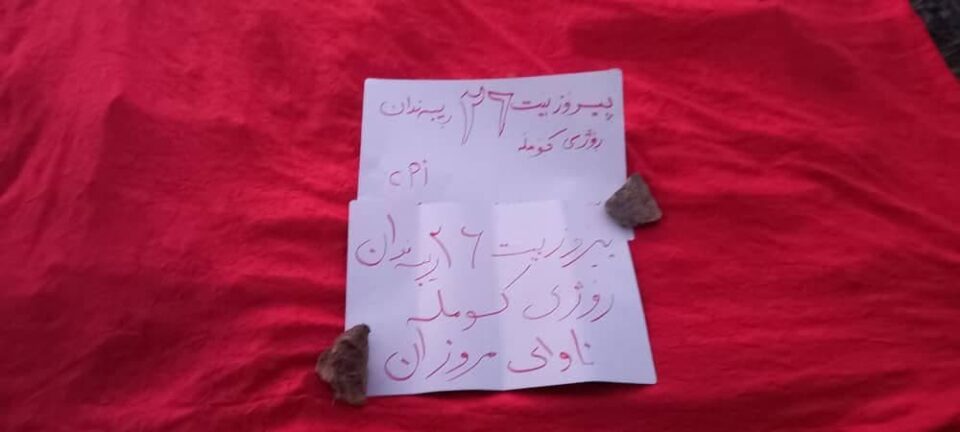 پیروزبیت ٢٦ ریبەندان
رۆژی کۆمەلە
cPi
پیروزبیت ٢٦ ریبەندان
رۆژی کۆمەلە
ناوای مروزان